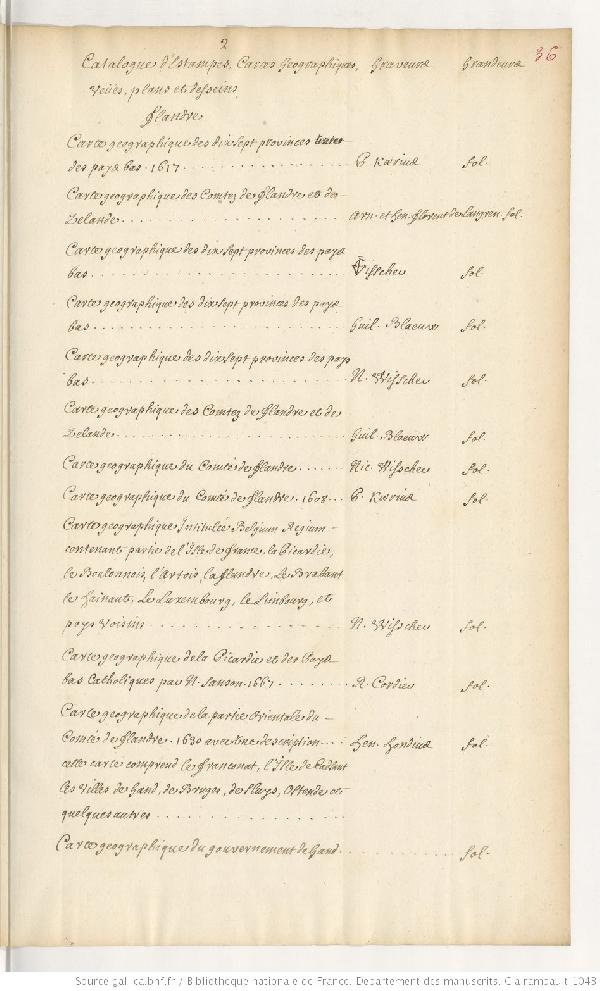 2
36
Catalogue d'Estampes, Cartes Geographiques, Graveurs Grandeurs
veües, plans et desseins
Flandre
Carte geographique des dix sept provinces
des pays bas. 1617 P. Kærius fol.
Carte geographique des Comtez de Flandre et de
Zelande Arn. et Hen. florent de Langren. fol.
Carte geographique des dix sept provinces des pays
bas Visscher fol.
Carte geographique des dix sept provinces des pays
bas Guil. Blaeuw fol.
Carte geographique des dix sept provinces des pays
bas N. Wisscher fol.
Carte geographique des Comtez de Flandre et de
Zelande Guil. Blaeuw fol.
Carte geographique du Comté de Flandre Nic. Wisscher fol.
Carte geographique du Comté de Flandre. 1608 P. Kærius fol.
Carte geographique Intitulée Belgium Regium
contenant partie de l'Isle de france, la Picardie,
le Boulonnois, l'Artois, la flandre, Le Brabant
le hainaut, Le Luxembourg, le Limbourg, et
pays voisins N. Wisscher fol.
Carte geographique de la Picardie et des Pays
bas Catholiques par N. Sanson. 1667 R. Cordier fol.
Carte geographique de la partie Orientale du
Comté de Flandre. 1630 avec une description Hen. Hondius fol.
cette carte comprend le franconat, l'Isle de Cadsant
les villes de Gand, de Bruges, de Sluys, Ostende et
quelques autres
Carte geographique du gouvernement de Gand fol.
Source gallica.bnf.fr / Bibliothèque nationale de France. Département des manuscrits. Clairambault 1048